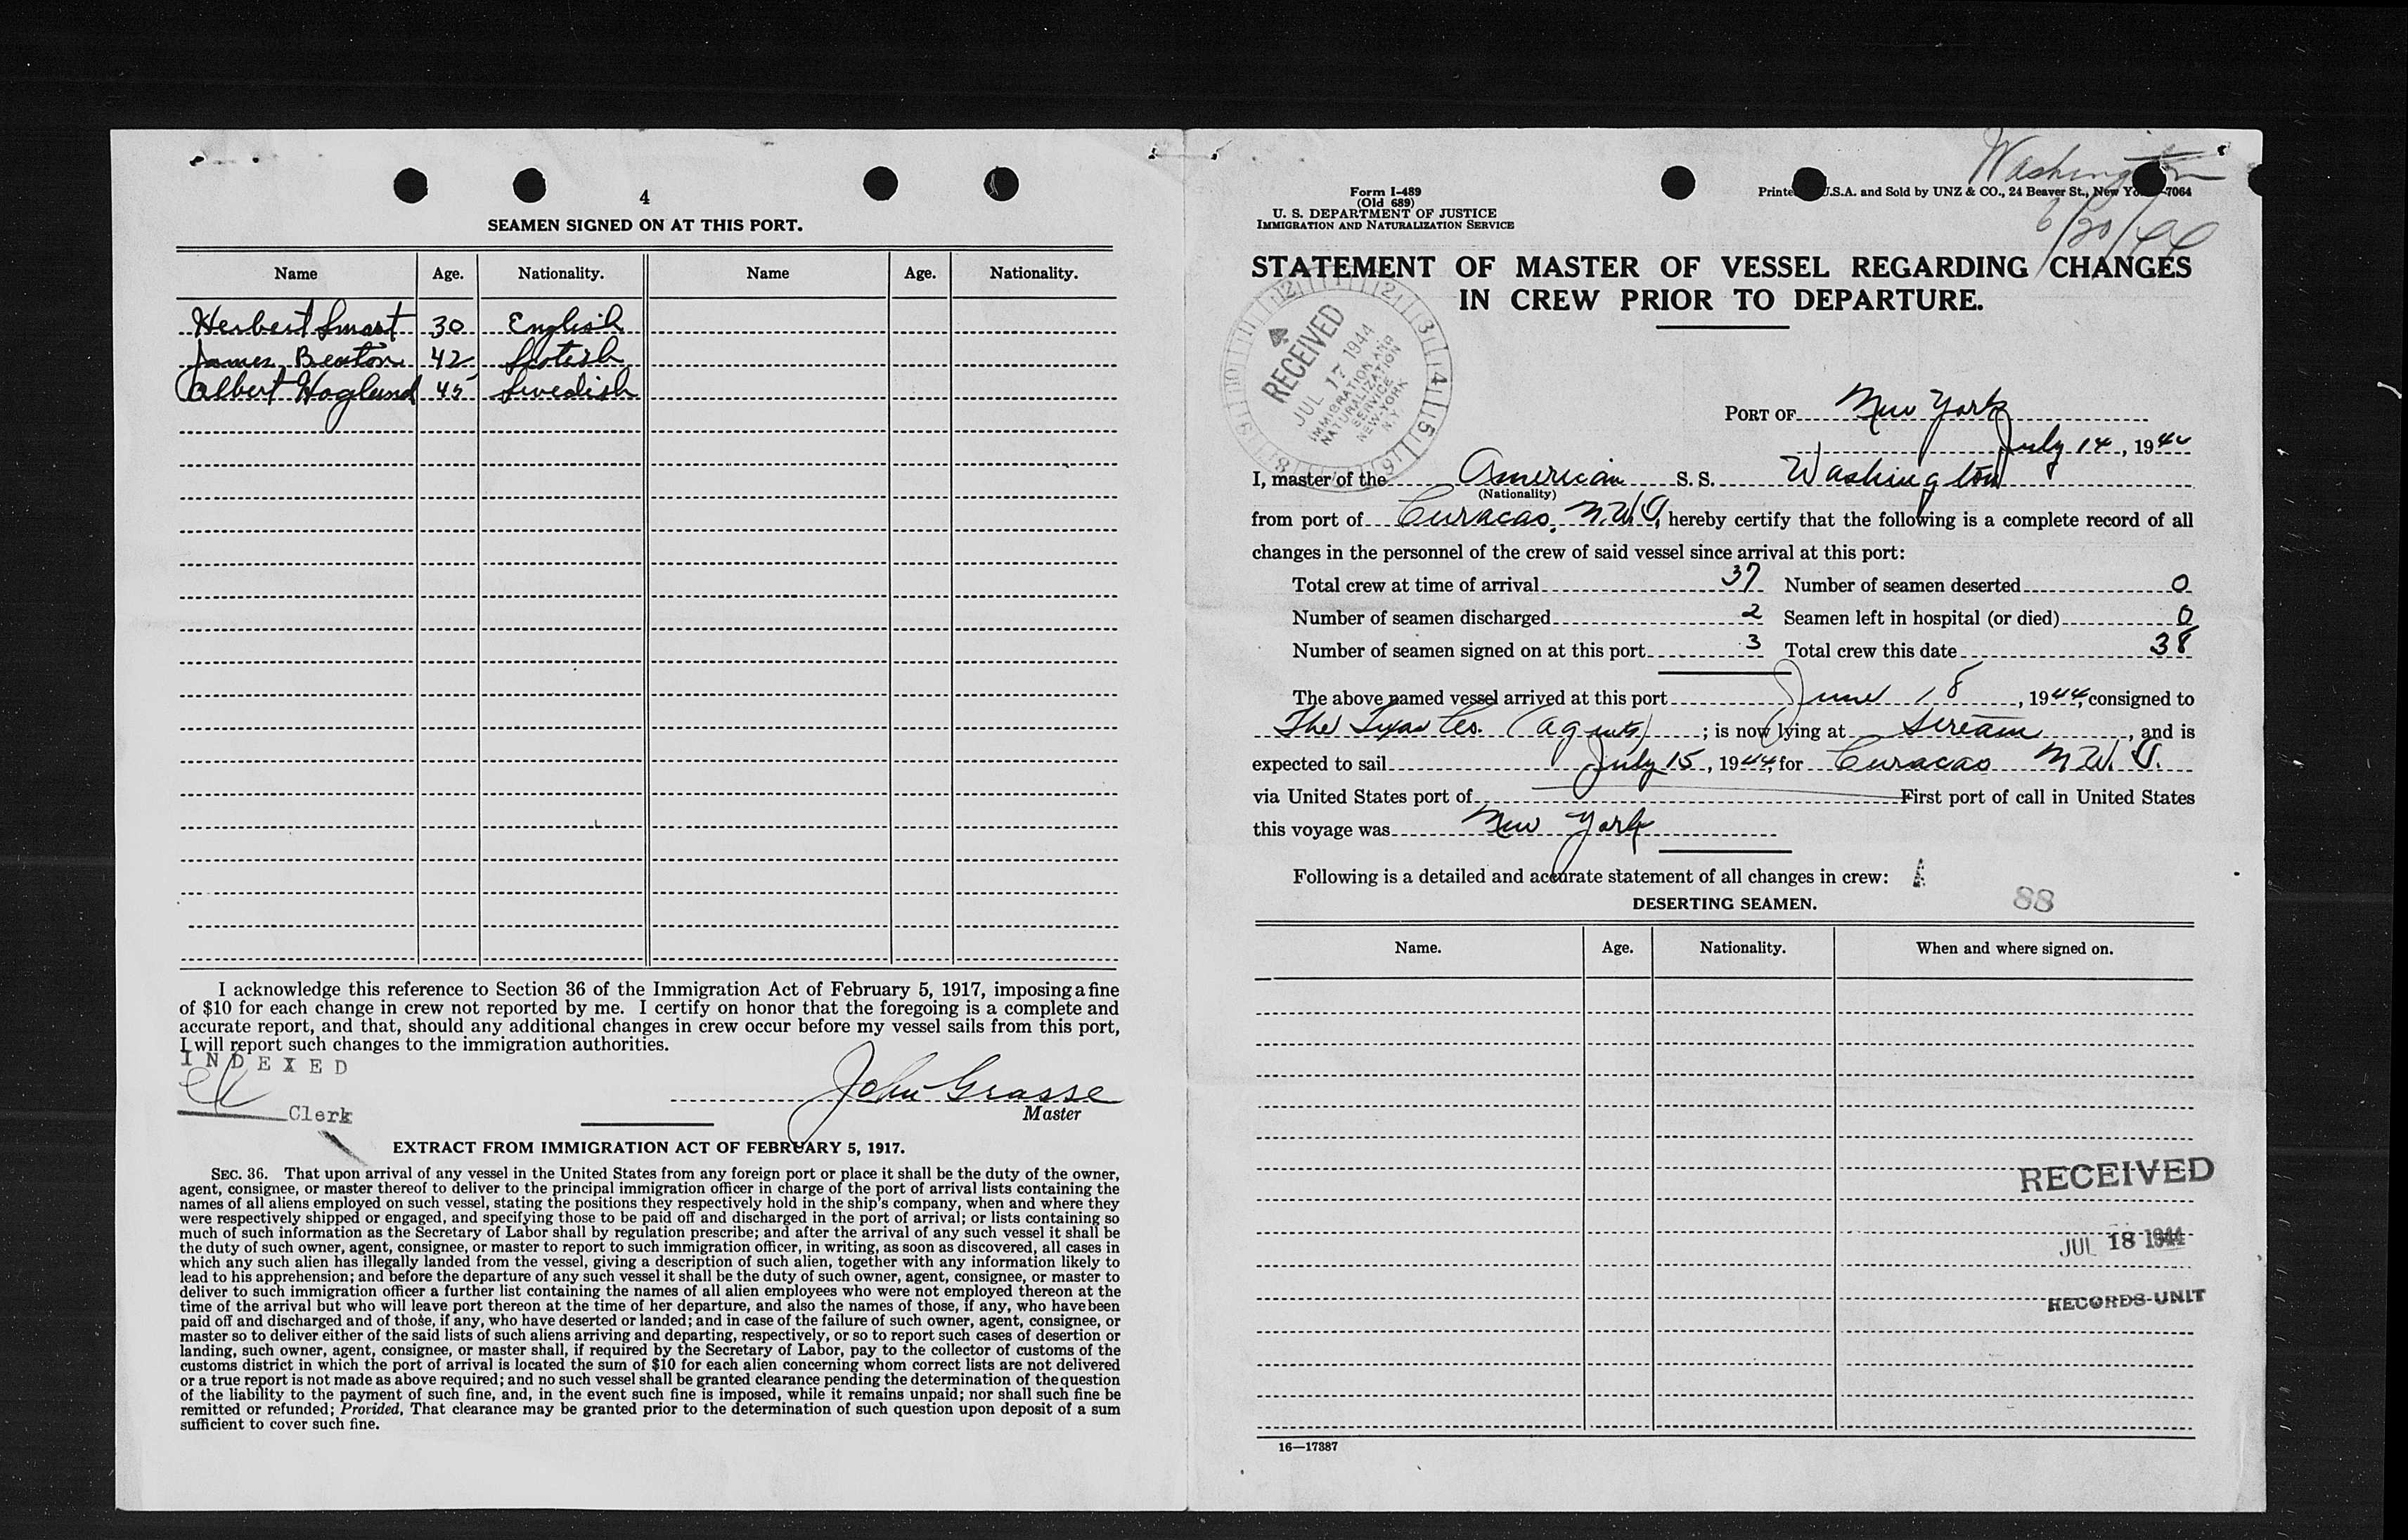 4
SEAMEN SIGNED ON AT THIS PORT.
Name Age. Nationality. Name Age. Nationality.
Herbert Smart 30 English
James Beaton 42 Scotish
Albert Hoglund 45 Swedish
I acknowledge this reference to Section 36 of the Immigration Act of February 5, 1917, imposing a fine
of $10 for each change in crew not reported by me. I certify on honor that the foregoing is a complete and
accurate report, and that, should any additional changes in crew occur before my vessel sails from this port,
I will report such changes to the immigration authorities.
INDEXED
Clerk
John Grasse
Master
EXTRACT FROM IMMIGRATION ACT OF FEBRUARY 5, 1917.
SEC. 36. That upon arrival of any vessel in the United States from any foreign port or place it shall be the duty of the owner,
agent, consignee, or master thereof to deliver to the principal immigration officer in charge of the port of arrival lists containing the
names of all aliens employed on such vessel, stating the positions they respectively hold in the ship's company, when and where they
were respectively shipped or engaged, and specifying those to be paid off and discharged in the port of arrival; or lists containing so
much of such information as the Secretary of Labor shall by regulation prescribe; and after the arrival of any such vessel it shall be
the duty of such owner, agent, consignee, or master to report to such immigration officer, in writing, as soon as discovered, all cases in
which any such alien has illegally landed from the vessel, giving a description of such alien, together with any information likely to
lead to his apprehension; and before the departure of any such vessel it shall be the duty of such owner, agent, consignee, or master to
deliver to such immigration officer a further list containing the names of all alien employees who were not employed thereon at the
time of the arrival but who will leave port thereon at the time of her departure, and also the names of those, if any, who have been
paid off and discharged and of those, if any, who have deserted or landed; and in case of the failure of such owner, agent, consignee, or
master so to deliver either of the said lists of such aliens arriving and departing, respectively, or so to report such cases of desertion or
landing, such owner, agent, consignee, or master shall, if required by the Secretary of Labor, pay to the collector of customs of the
customs district in which the port of arrival is located the sum of $10 for each alien concerning whom correct lists are not delivered
or a true report is not made as above required; and no such vessel shall be granted clearance pending the determination of the question
of the liability to the payment of such fine, and, in the event such fine is imposed, while it remains unpaid; nor shall such fine be
remitted or refunded; Provided, That clearance may be granted prior to the determination of such question upon deposit of a sum
sufficient to cover such fine.
Washington
6/20/44
Form I-489
(Old 689)
U. S. DEPARTMENT OF JUSTICE
IMMIGRATION AND NATURALIZATION SERVICE
Printe U.S.A. and Sold by UNZ & CO., 24 Beaver St., New Yo 7064
STATEMENT OF MASTER OF VESSEL REGARDING CHANGES
IN CREW PRIOR TO DEPARTURE.
RECEIVED
JUL 17 1944
IMMIGRATION AND
NATURALIZATION
SERVICE
NEW-YORK
N.Y.
PORT OF New York
July 14, 1944
I, master of the American S. S. Washington
(Nationality)
from port of Curacao, N.W.I, hereby certify that the following is a complete record of all
changes in the personnel of the crew of said vessel since arrival at this port:
Total crew at time of arrival 37 Number of seamen deserted 0
Number of seamen discharged 2 Seamen left in hospital (or died) 0
Number of seamen signed on at this port 3 Total crew this date 38
The above named vessel arrived at this port June 18, 1944, consigned to
The Texas Co. (agents) ; is now lying at stream, and is
expected to sail July 15, 1944, for Curacao N.W.I.
via United States port of First port of call in United States
this voyage was New York
Following is a detailed and accurate statement of all changes in crew:
88
DESERTING SEAMEN.
Name. Age. Nationality. When and where signed on.
RECEIVED
JUL 18 1944
RECORDS-UNIT
16—17387